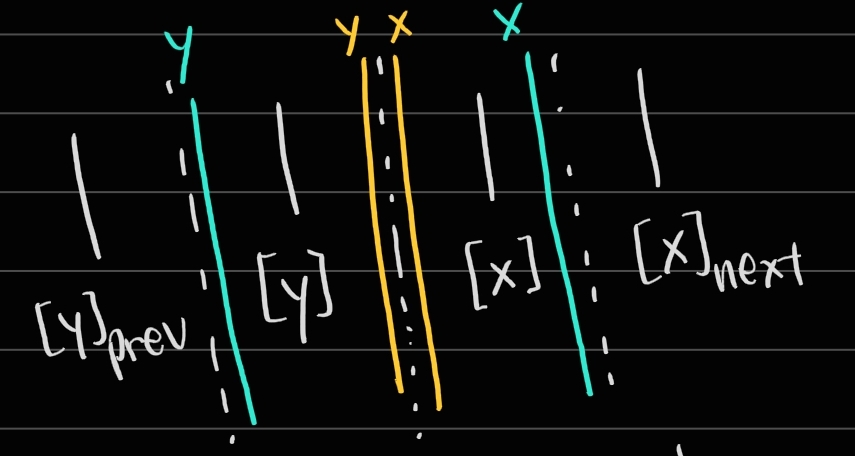 Y Y X X
[Y]prev [Y] [X] [X]next